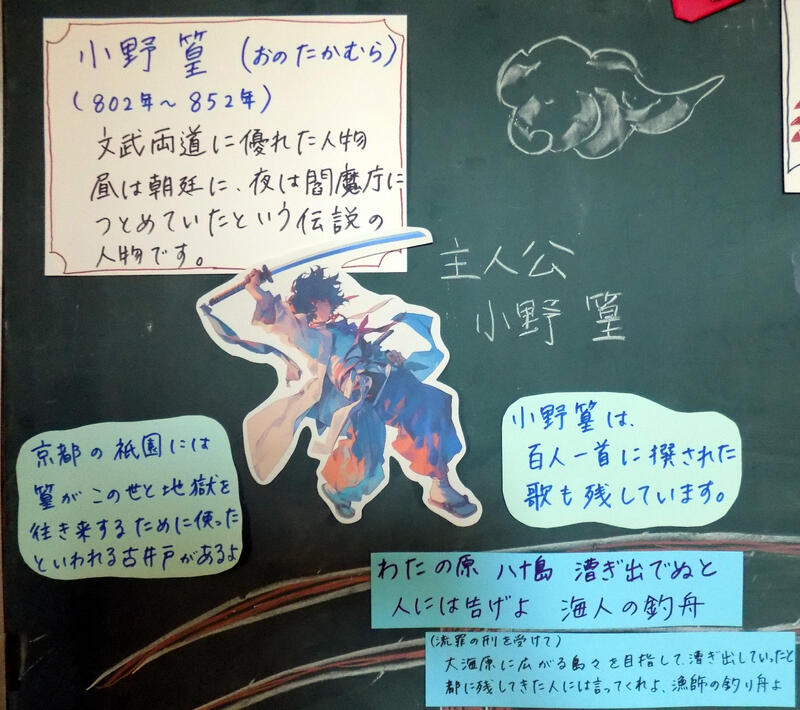 小野 篁 (おのたかむら)
(802年～852年)
文武両道に優れた人物
昼は朝廷に、夜は閻魔庁に
つとめていたという伝説の
人物です。
主人公
小野 篁
京都の祇園には
篁がこの世と地獄を
往き来するために使った
といわれる古井戸があるよ
小野篁は、
百人一首に撰された
歌も残しています。
わたの原 八十島 漕ぎ出でぬと
人には告げよ 海人の釣舟
(流罪の刑を受けて)
大海原に広がる島々を目指して、漕ぎ出していったと
都に残してきた人には言ってくれよ、漁師の釣り舟よ